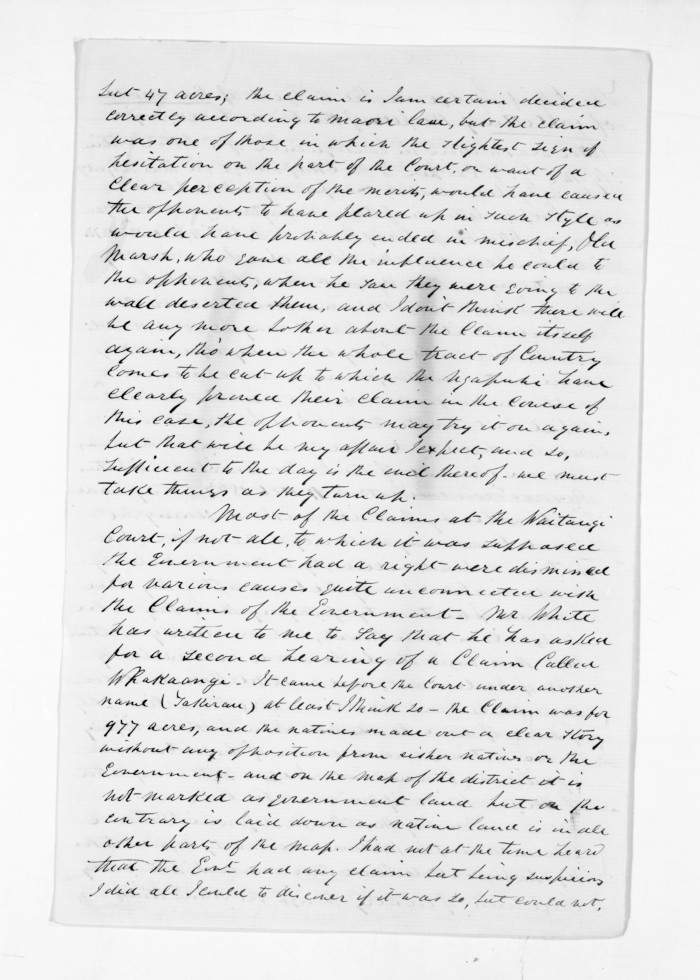 but 47 acres; the claim is I am certain decided
correctly according to maori law, but the claim
was one of those in which the slightest sign of
hesitation on the part of the Court, or want of a
clear perception of the merits, would have caused
the opponents to have flared up in such style as
would have probably ended in mischief, Old
Marsh, who gave all the influence he could to
the opponents, when he saw they were going to the
wall deserted them, and I don't think there will
be any more bother about the Claim itself
again, tho' when the whole tract of Country
comes to be cut up to which the Ngapuhi have
clearly proved their claim in the Course of
this case, the opponents may try it on again,
but that will be my affair I expect, and so,
sufficient to the day is the evil thereof - we must
take things as they turn up.
Most of the Claims at the Waitangi
Court, if not all, to which it was supposed
the Government had a right were dismissed
for various causes quite unconnected with
the Claims of the Government - Mr White
has written to me to say that he has asked
for a second hearing of a Claim Called
Whakaangi - It came before the Court under another
name (Takirau) at least I think so - the Claim was for
977 acres, and the natives made out a clear story
without any opposition from either natives or the
Government - and on the map of the district it is
not marked as government land but on the
contrary is laid down as native land is in all
other parts of the map. I had not at the time heard
that the Govt. had any claim but being suspicious
I did all I could to discover if it was so, but could not,